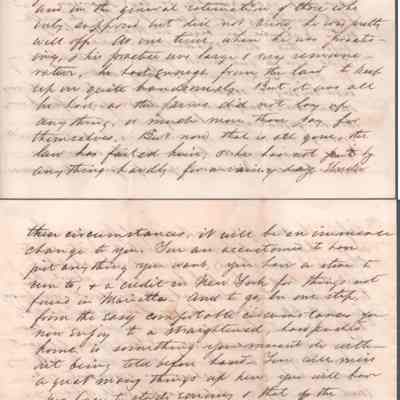 and in the general estimation of those who
only suppose but did not know, he was pretty
well off. At one time, when he was practic-
ing, & his practice was large & very remune-
rative, he had enough from the law to keep
up on quite handsomely. But it was all
he had, as the farms did not buy up
anything, or much more than pay for
themselves. But now that is all gone, the
law has failed him, & he has not put by
anything hardly for a rainy day. Under
these circumstances, it will be an immense
change to you. You are accustomed to have
just anything you want, you have a store to
run to, & a credit in New York for things not
found in Marietta. And to go, in one step,
from the easy comfortable circumstances you
now enjoy to a straightened, hard pushed
home, is something you must not do with-
out being told before hand. You will miss
a great many things up here, you will have
economy & that of the